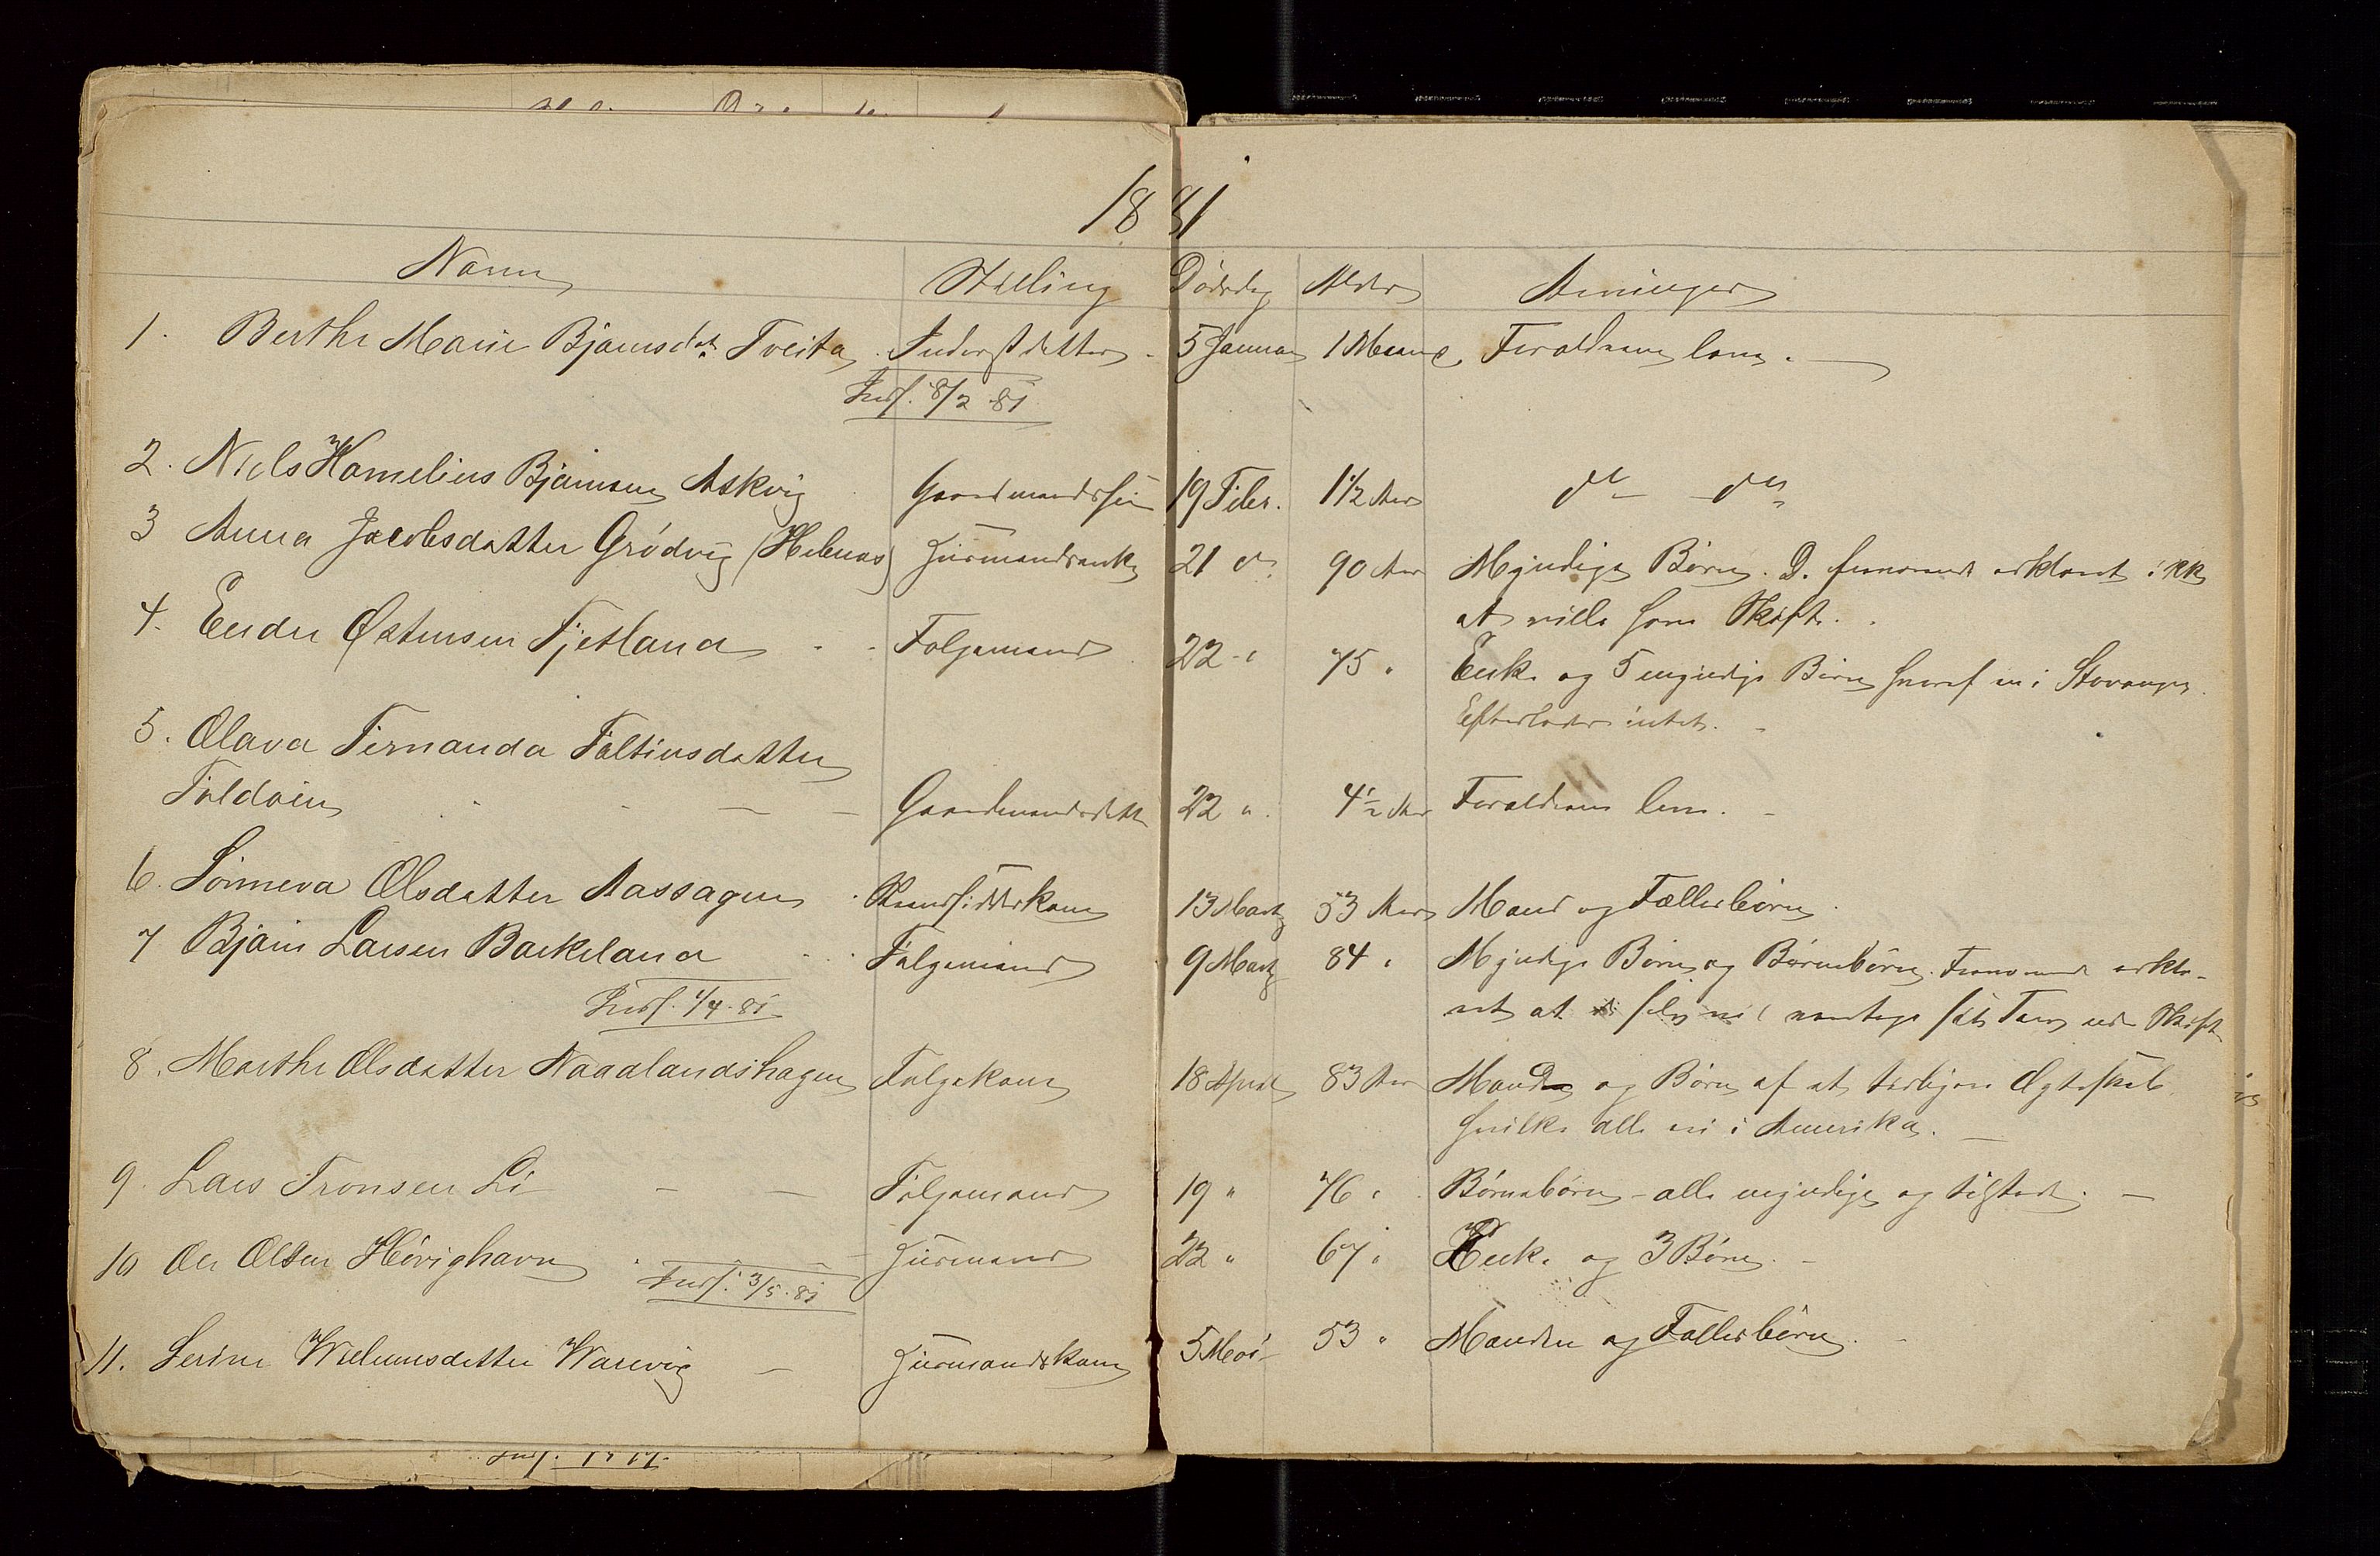 1881
Navn Stilling Dødsdag Alder Arvinger
1. Berthe Marie Bjørnsdat. Tveita Inderstdatter 5 Januar 1 Maaned Forældrene leve.
Indf. 8/2 81
2. Niels Kornelius Bjørnsen Askvig Gaardmandssøn 19 Febr. 1½ Aar do do
3 Anna Jacobsdatter Grødvig (Helenas) Huusmandsenke 21 do 90 Aar Myndige Børn. D. fremmed erklæret ikke
at ville have Skifte.
4. Endre Østensen Fjetland Folgemand 22 " 75 " Enke og 5 myndige Børn hvoraf en i Stavanger.
Efterlader intet.
5. Olava Fernanda Faltinsdatter
Foldøen Gaardmandsdatter 22 " 4½ Aar Forældrene leve.
6. Sønneva Olsdatter Aassagen Strandsidderkone 13 Marts 53 Aar Mand og Fællesbørn.
7 Bjørn Larsen Bakeland Følgemand 9 Marts 84 " Myndige Børn og Børnebørn. erklæ-
ret at selv ville sit Skifte
Indf. 1/4 81
8. Marthe Olsdatter Naadlandshagen Folgekone 18 April 83 Aar Mand og Børn af et tidligere Ægteskab
hvilke alle ere i Amerika.
9. Lars Tronsen Li Følgemand 19 " 76 " Børnebørn - alle myndige og tilstede.
10 Ole Olsen Høvighavn Huusmand 22 " 67 " Enke og 3 Børn.
Indf. 3/5 81
11. Serine Wielumsdatter Warvig Huusmandskone 5 Mai 53 " Manden og Fællesbørn.